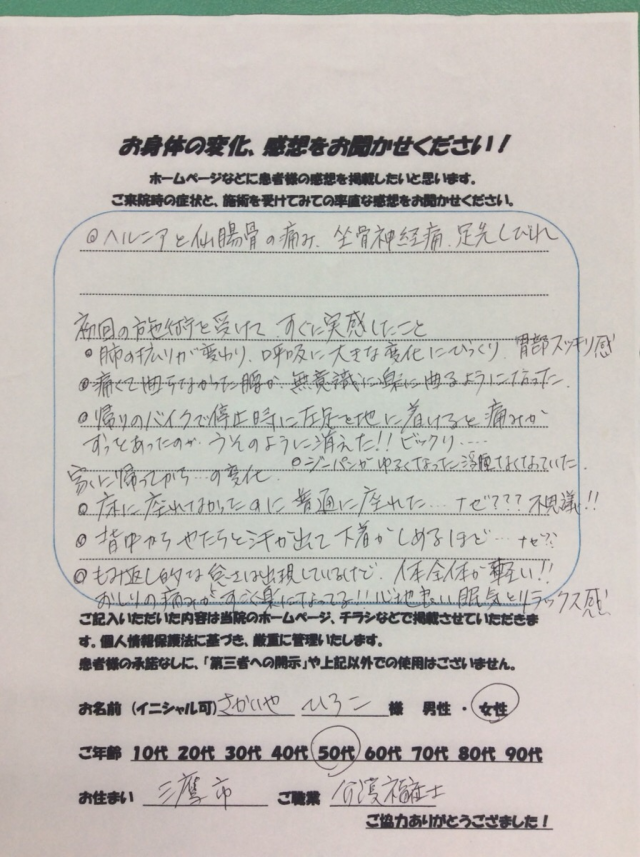 お身体の変化、感想をお聞かせください！
ホームページなどに患者様の感想を掲載したいと思います。
ご来院時の症状と、施術を受けてみての率直な感想をお聞かせください。
◎ヘルニアと仙腸骨の痛み、坐骨神経痛、足先しびれ
初回の施術を受けて すぐに実感したこと
◎肺の拡がりが変わり、呼吸に大きな変化にびっくり、胃部スッキリ感
◎痛くて曲らなかった腰が、無意識に楽に曲るようになった、
◎帰りのバイクで停止時に左足を地に着けると痛みが
ずっとあったのが、うそのように消えた!! ビックリ……
◎ジーパンがゆるくなった 浮腫なくなっていた、
家に帰ってから…の変化
◎床に座れなかったのに 普通に座れた… ナゼ??? 不思議!!
◎背中からやたらと汗が出て 下着がしめるほど… ナゼ??
◎もみ返し的な怠さは出現しているけど、体全体が軽い!!
おしりの痛みがすごく楽になってる!! 心地良い眠気とリラックス感
ご記入いただいた内容は当院のホームページ、チラシなどで掲載させていただきま
す。個人情報保護法に基づき、厳重に管理いたします。
患者様の承諾なしに、「第三者への開示」や上記以外での使用はございません。
お名前（イニシャル可）さかいや ひろこ 様 男性 ・ 女性
ご年齢 10代 20代 30代 40代 50代 60代 70代 80代 90代
お住まい 三鷹市 ご職業 介護福祉士
ご協力ありがとうござました！